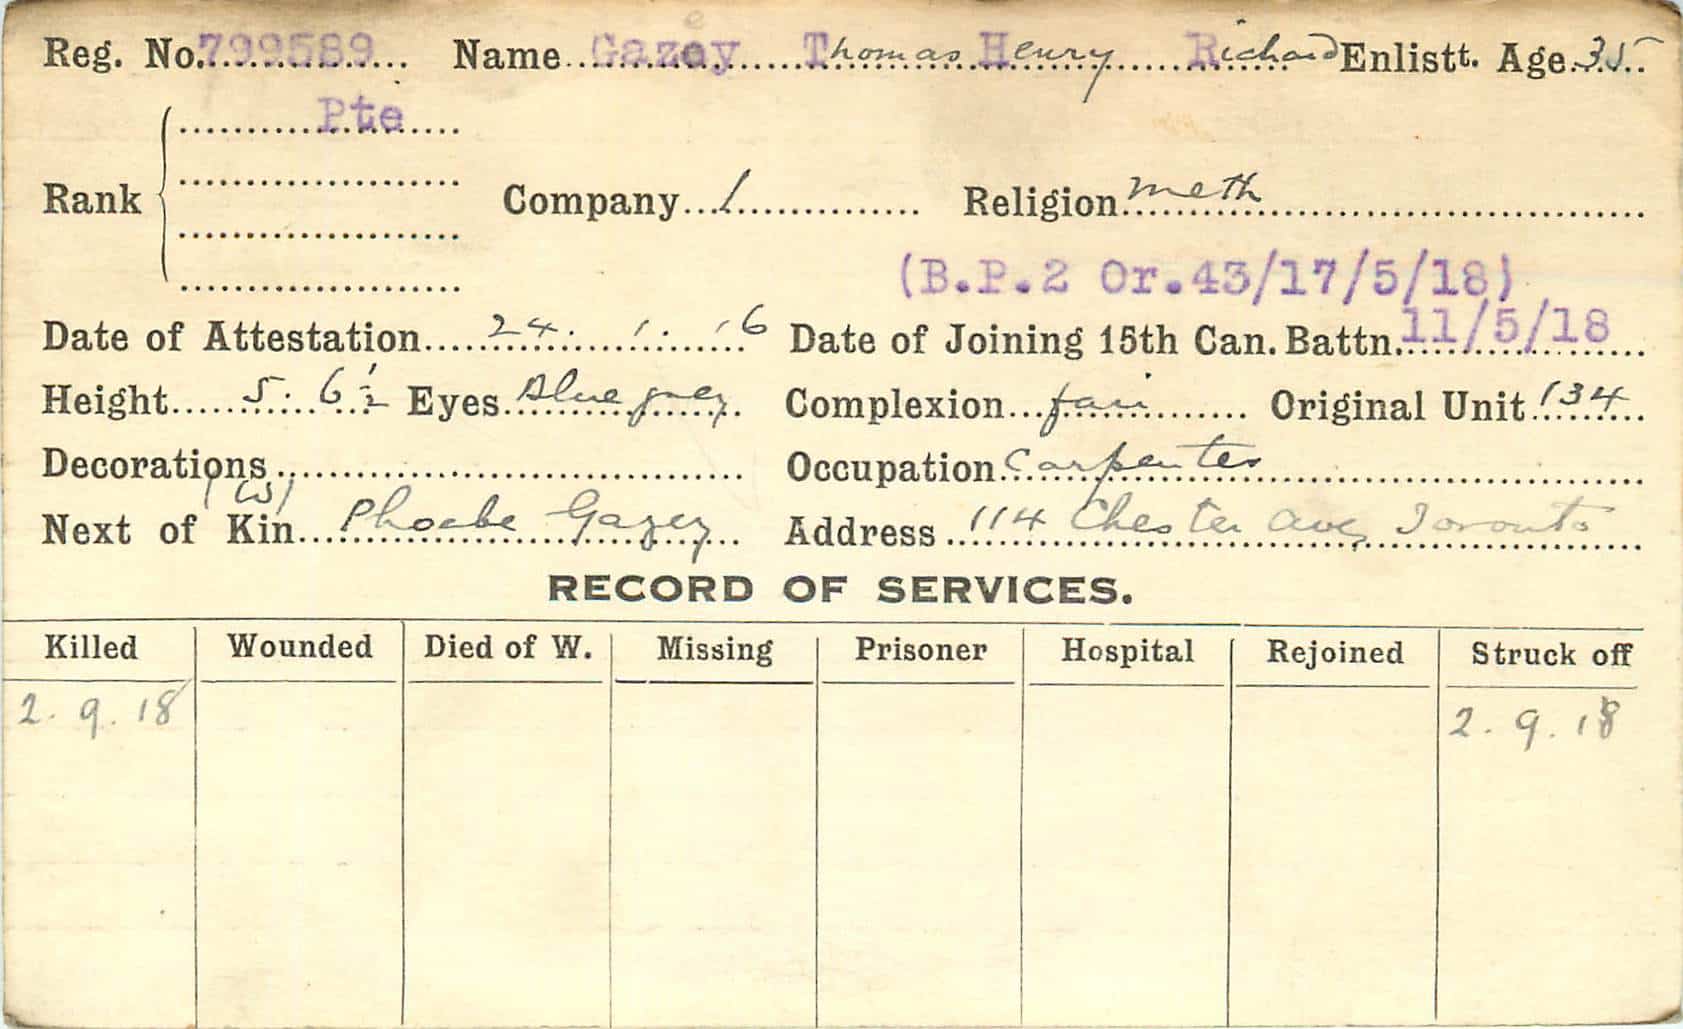 Reg. No. 799589 Name Gazey Thomas Henry Richard Enlistt. Age 35
Pte
Rank Company 1 Religion meth
(B.P.2 Or.43/17/5/18)
Date of Attestation 24. 1. 16 Date of Joining 15th Can. Battn. 11/5/18
Height 5. 6½ Eyes Blue grey Complexion fair Original Unit 134
Decorations Occupation Carpenter
(W)
Next of Kin Phoebe Gazey Address 114 Chester Ave, Toronto
RECORD OF SERVICES.
Killed Wounded Died of W. Missing Prisoner Hospital Rejoined Struck off
2. 9. 18 2. 9. 18